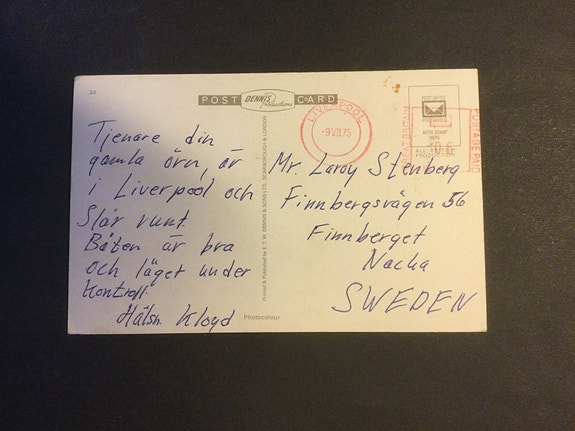 34
POST DENNIS Productions CARD
Tjenare din
gamla örn, är
i Liverpool och
Slår runt.
Båten är bra
och läget under
Kontroll.
Hälsn. Kloyd
Printed & Published by E. T. W. DENNIS & SONS LTD., SCARBOROUGH & LONDON
Photocolour
LIVERPOOL
-9 VII 75
GREAT BRITAIN
POSTAGE PAID
POST OFFICE
POSTAGE
AFFIX STAMP
HERE
PRODUCTION
Mr. Laroy Stenberg
Finnbergsvägen 56
Finnberget
Nacka
SWEDEN